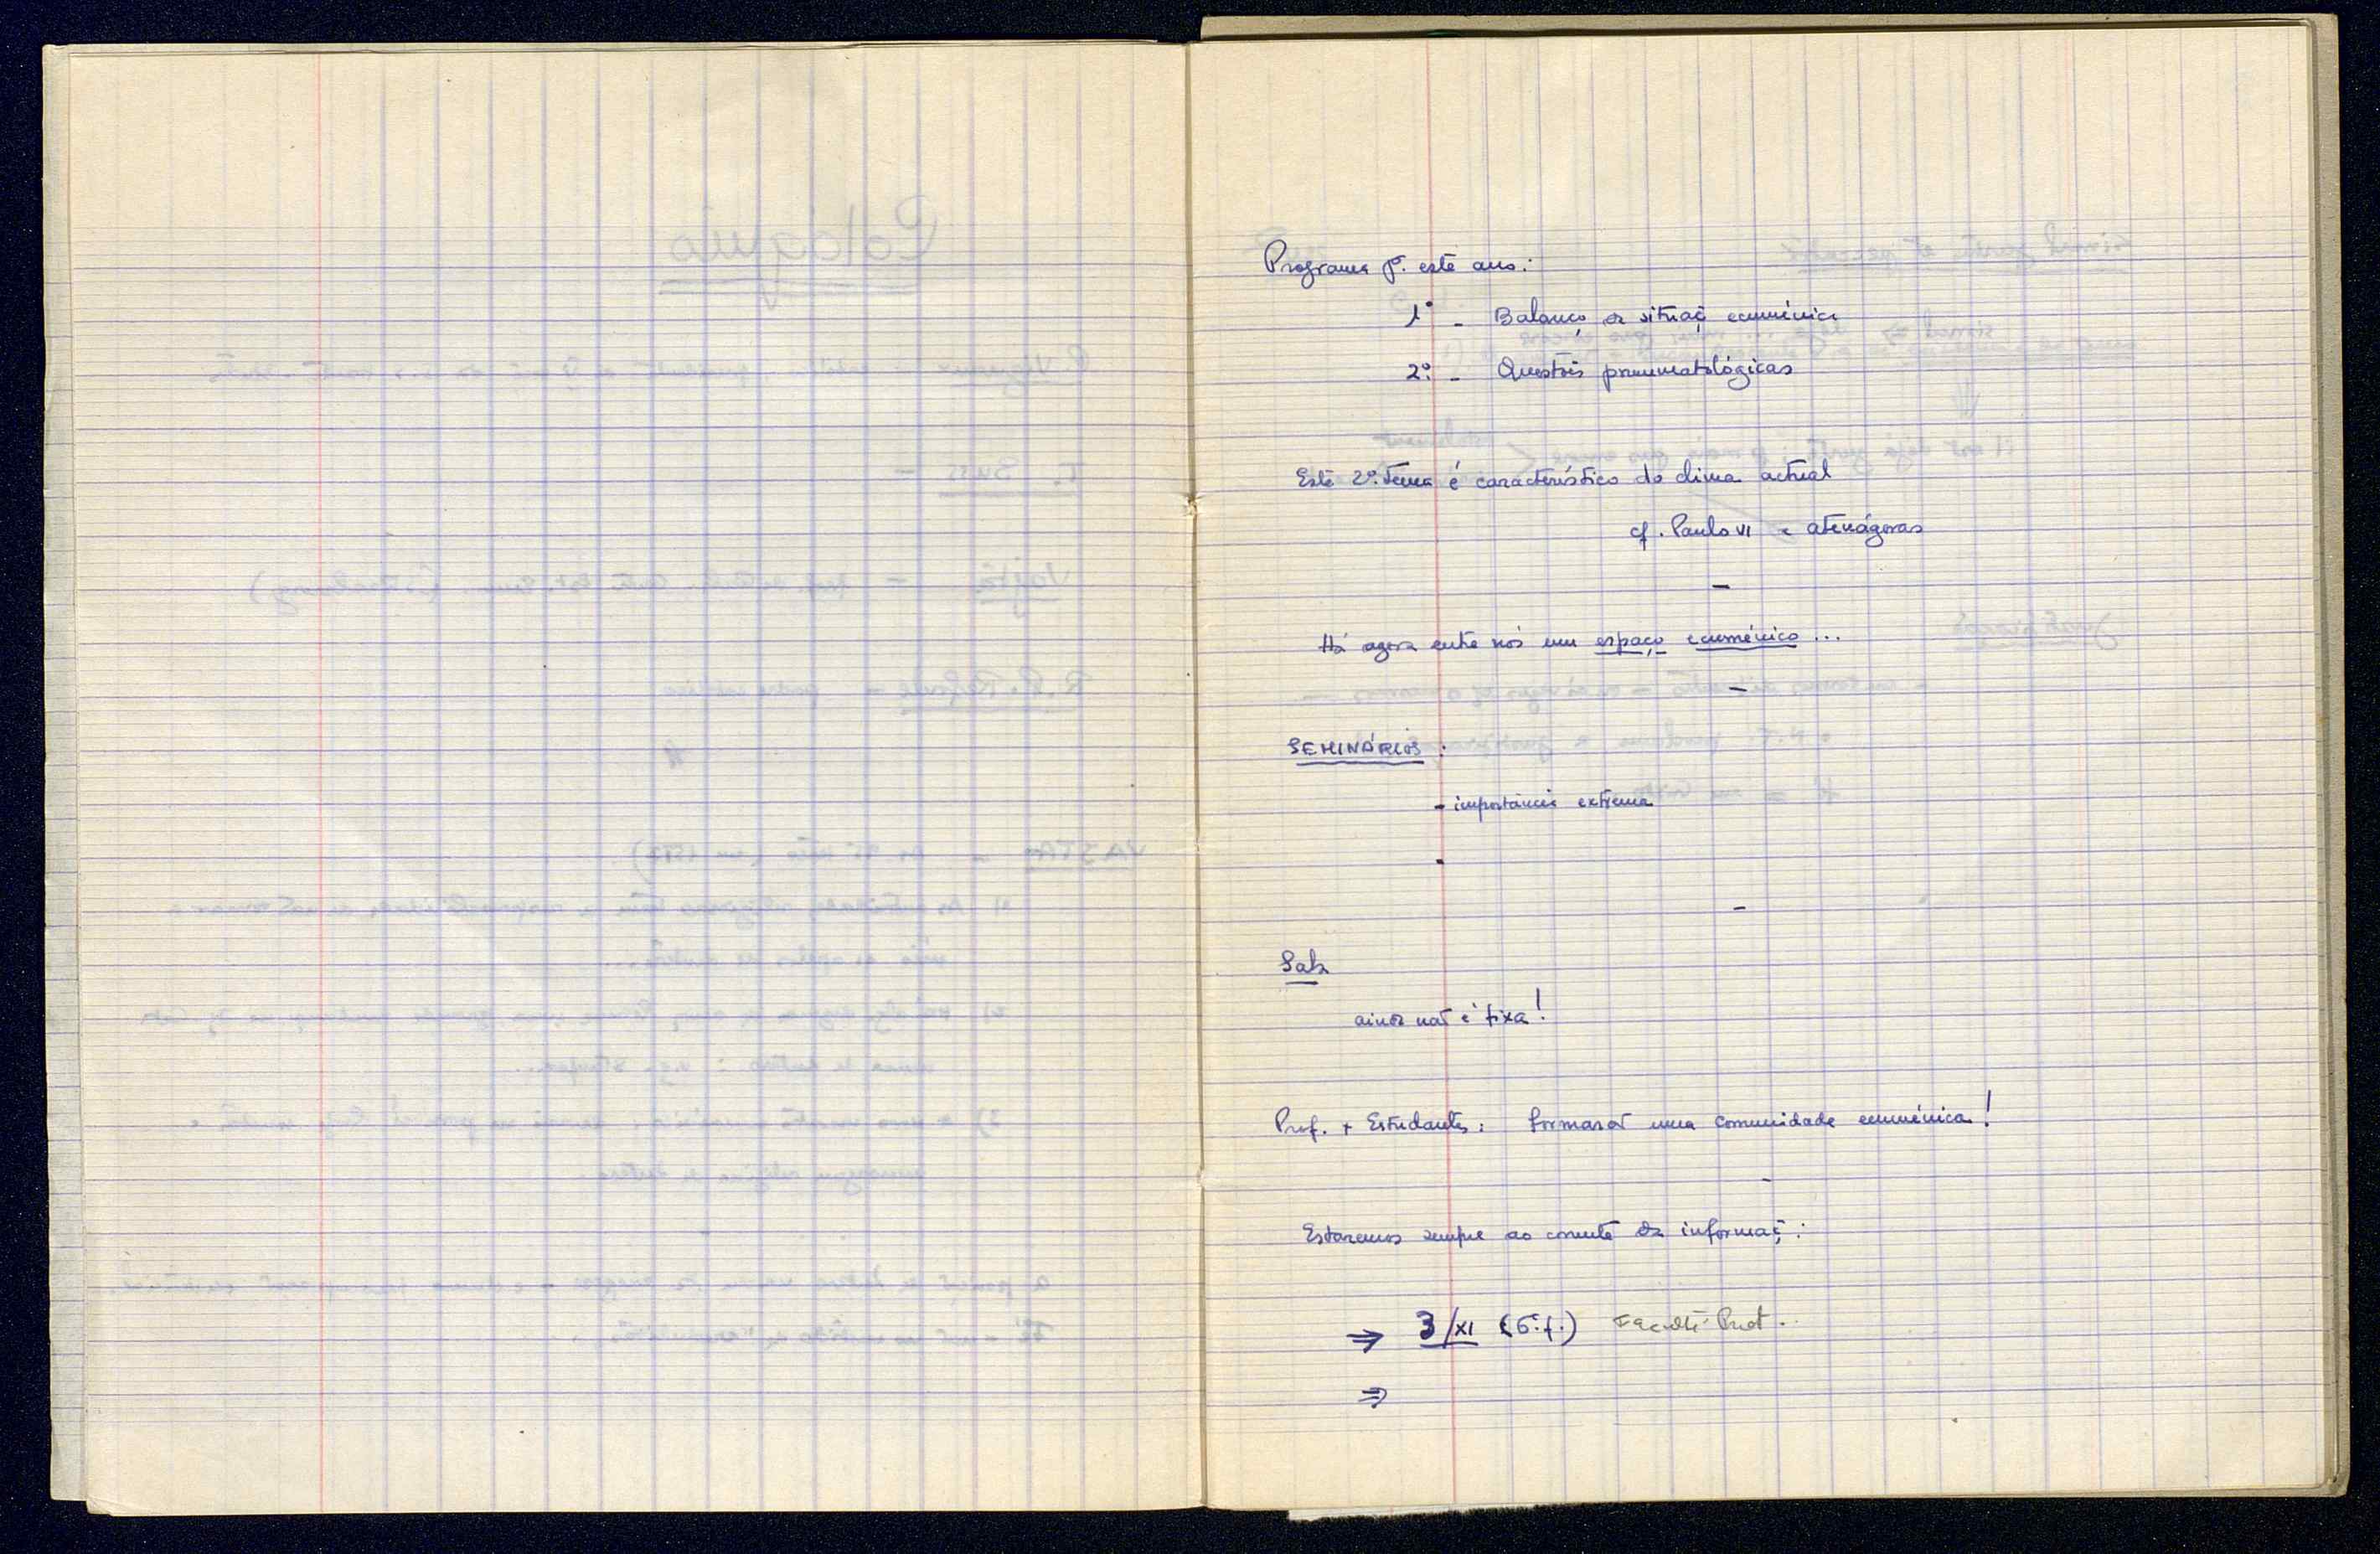 Programa p. este ano:
1º - Balanço da situaç ecuménica
2º. - Questões pneumatológicas
Este 2º. Tema é característico do clima actual
cf. Paulo VI e Atenágoras
-
Há agora entre nós um espaço ecuménico...
-
SEMINÁRIOS:
- importância extrema
-
-
Sala
ainda não é fixa!
Prof. + Estudantes: formarão uma comunidade ecuménica!
-
Estaremos sempre ao corrente da informaç:
⇒ 3/XI (6ª. f.) Faculté Prot.
⇒